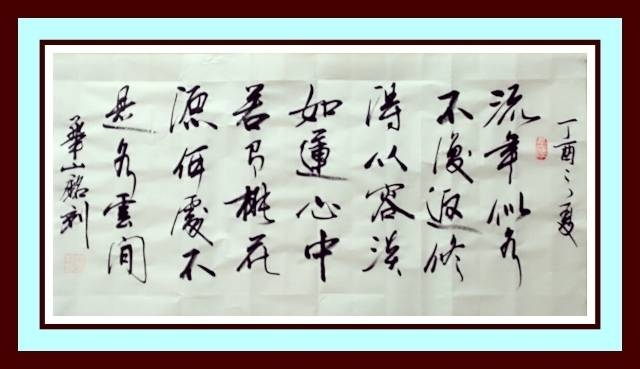 丁酉之夏
流年似水
不復返修
得从容淡
如蓮心中
若有桃花
源何處不
是水雲間
華山銘